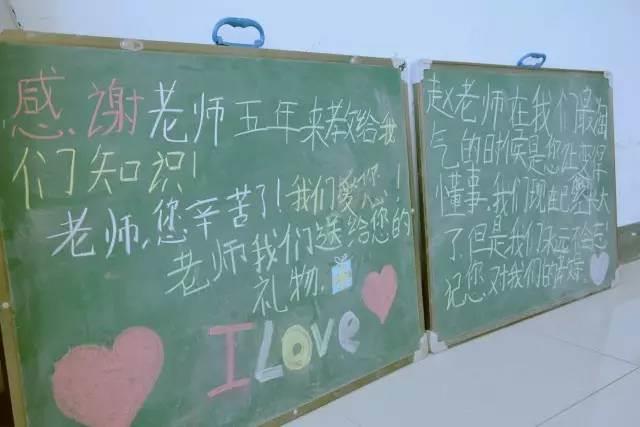 感谢老师五年来教给我
们知识!
老师,您辛苦了!我们爱您!
老师我们送给您的
礼物.
I Love
赵老师在我们最淘
气的时候是您让变得
懂事.我们现已经长大
了.但是我们永远不会忘
记您.对我们的